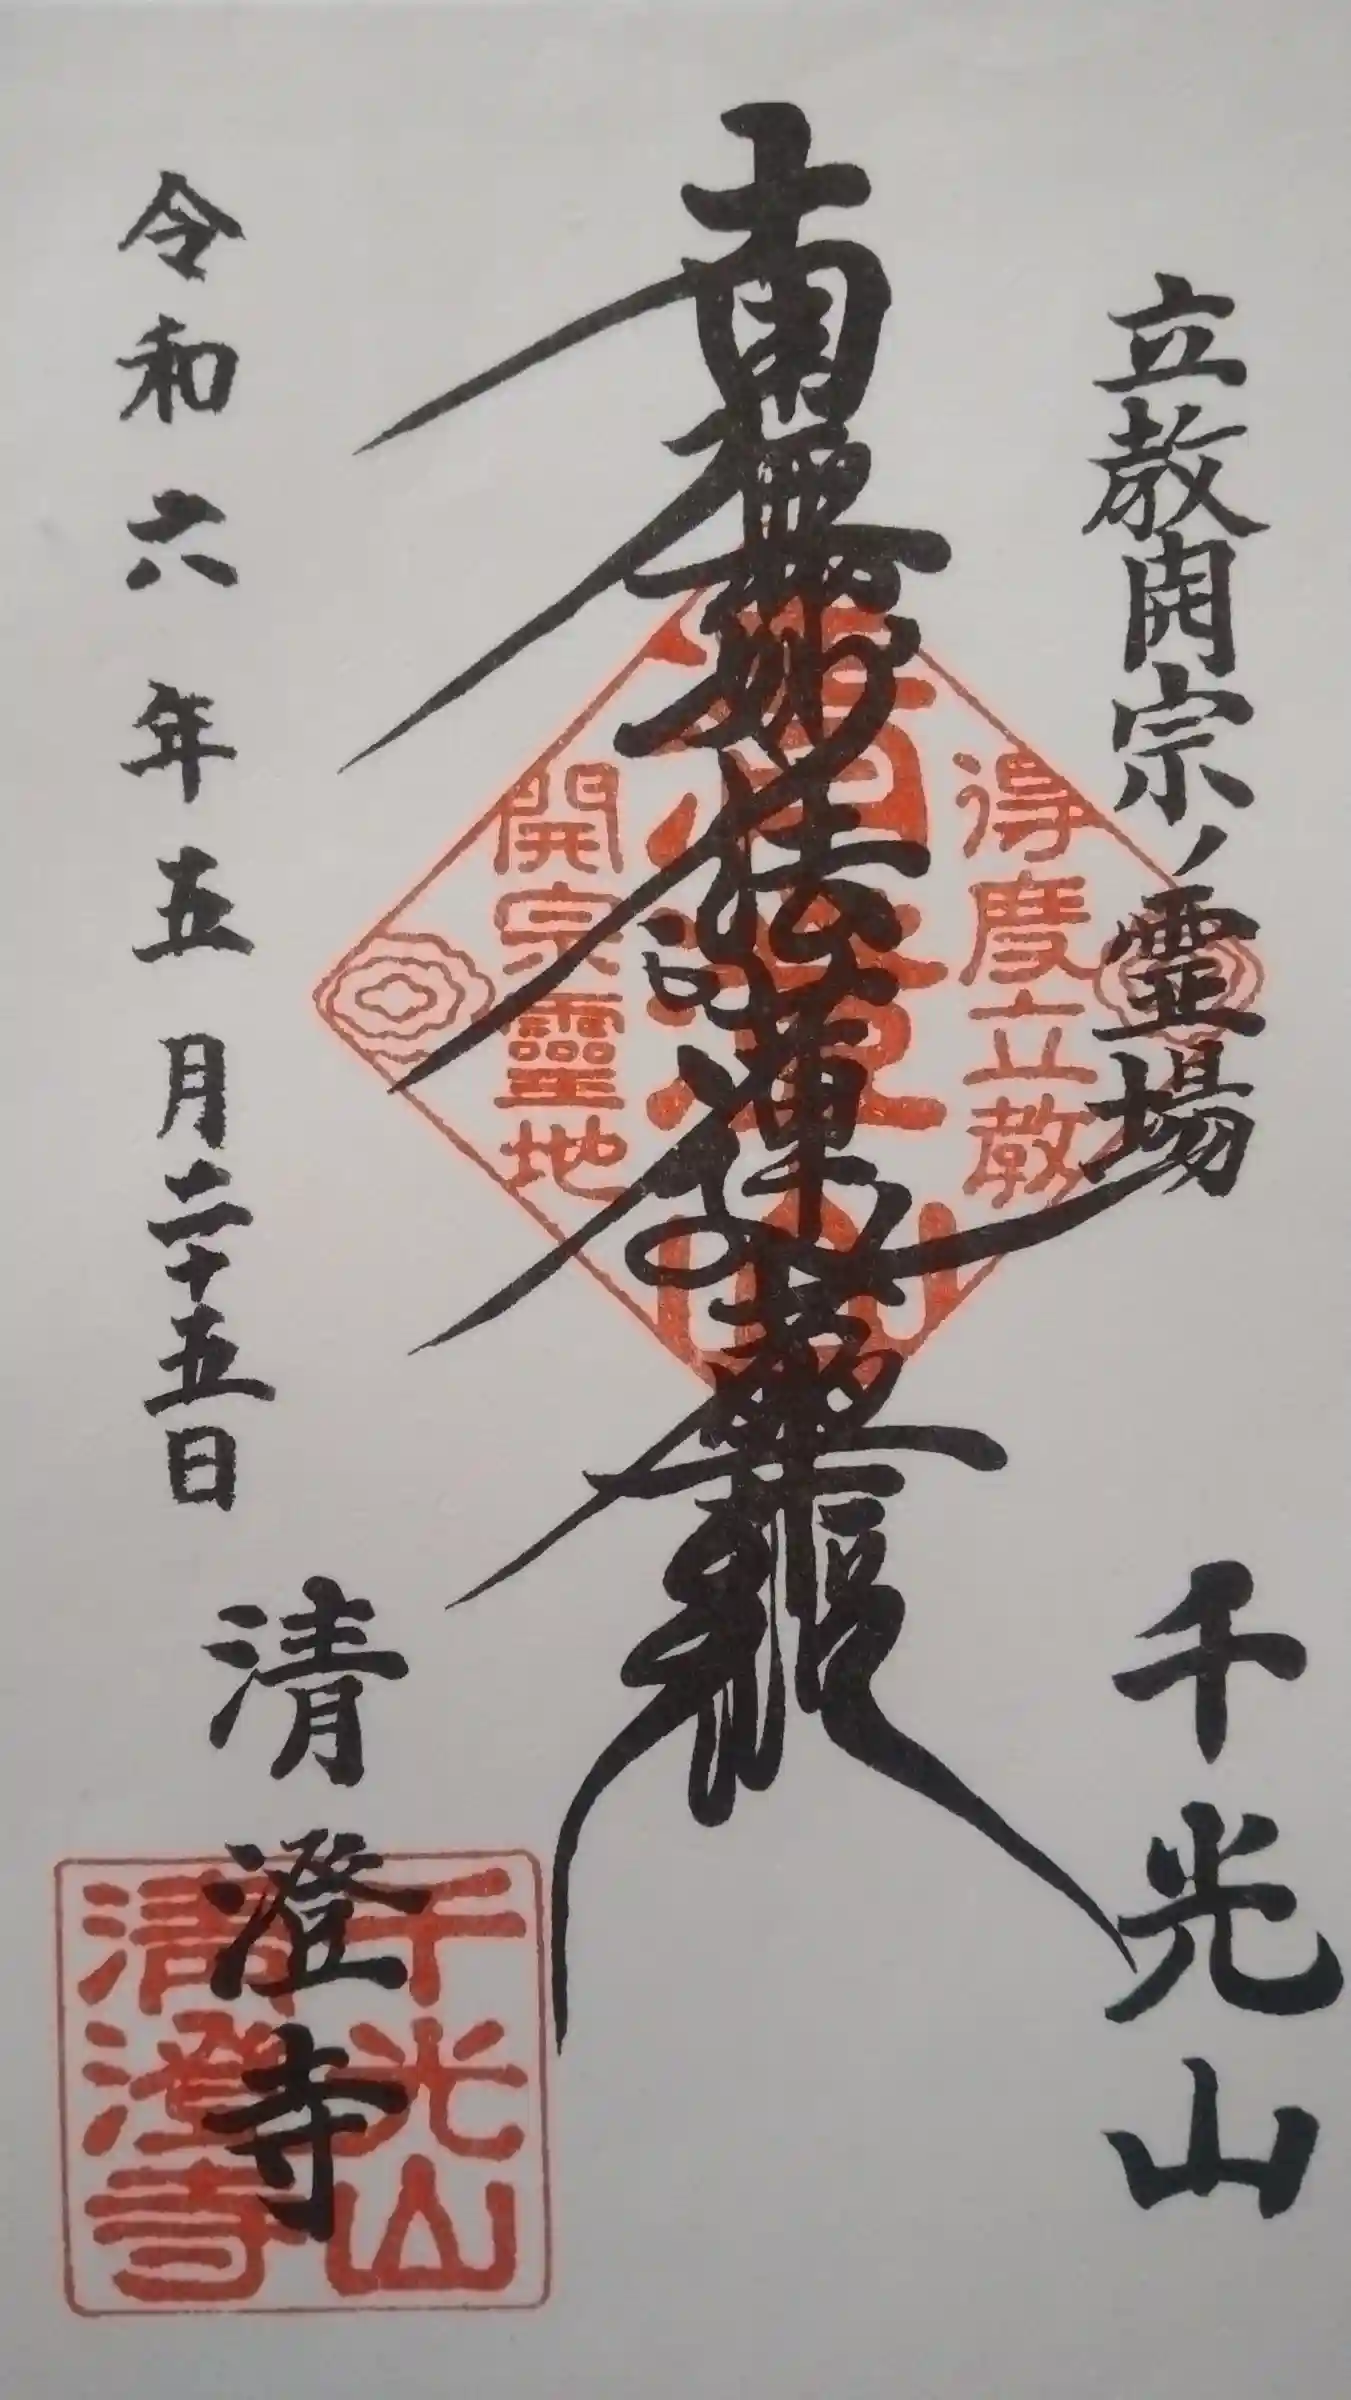 立教開宗ノ霊場
千光山
南無妙法蓮華経
得度立教
開宗霊地
令和六年五月二十五日
清澄寺
千光山
清澄寺